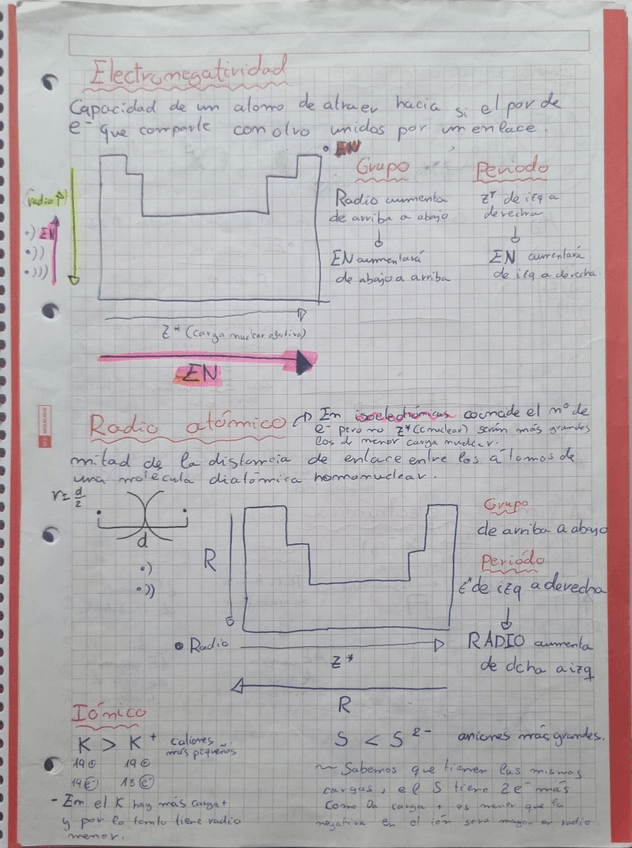 Electronegatividad
Capacidad de un atomo de atraer hacia si el par de
e⁻ que comparte con otro unidos por un enlace.
EN
Grupo
Radio aumenta
de arriba a abajo
EN aumentará
de abajo a arriba
Periodo
Z* de izq a
derecha
EN aumentará
de izq a derecha
(radio)
EN
Z* (carga nuclear efectiva)
EN
Radio atómico
En isoelectrónicas coincide el nº de
e⁻ pero no Z* (c nuclear) serán más grandes
los d menor carga nuclear.
mitad de la distancia de enlace entre los átomos de
una molécula diatómica homonuclear.
r = d/2
d
R
Radio
Z*
R
Grupo
de arriba a abajo
Periódo
Z* de izq a derecha
RADIO aumenta
de dcha a izq
Iónico
K > K⁺ cationes
más pequeños
19⊕ 19⊕
19e⁻ 18e⁻
- En el K hay más carga +
y por lo tanto tiene radio
menor.
S < S²⁻ aniones más grandes.
Sabemos que tienen las mismas
cargas, el S tiene 2e⁻ más
como la carga + es menor que la
negativa en el ión será mayor el radio.